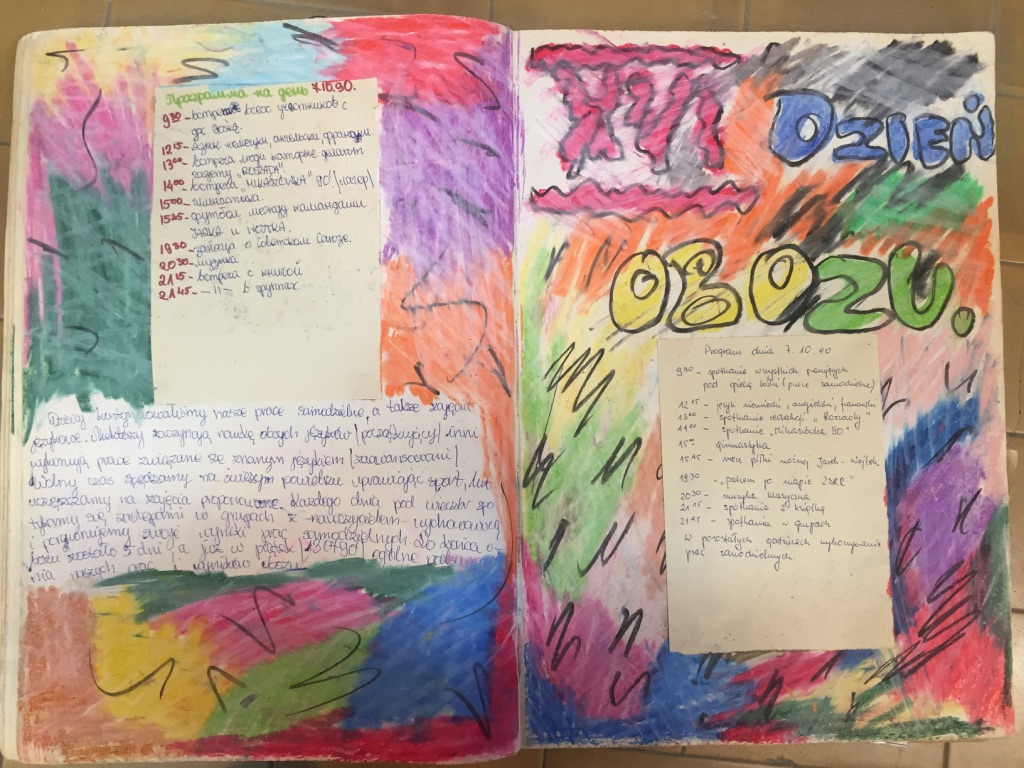 Программа на день 7.10.90.
9³⁰ - встреча всех участников с
12¹⁵ - языки
13⁰⁰ - встреча люди которые делают
газету "ROSADA"
14⁰⁰ - встреча "MIKASZÓWKA" 90'
15⁰⁰ - гимнастика.
15⁴⁵ - футбол между командами
JARKA и WOJTKA.
19³⁰ - о Советском Союзе.
20³⁰ - музыка
21¹⁵ - встреча с книгой
21⁴⁵ - -"- в группах
Dzisiaj kontynuowaliśmy nasze prace samodzielne, a także zajęcia
językowe. Niektórzy zaczynają naukę obcych języków /początkujący/ inni
prace związane ze znanym językiem /zaawansowani/.
Wolny czas spędzamy na świeżym powietrzu uprawiając sport, lub
uczęszczamy na zajęcia proponowane. Każdego dnia pod wieczór spo-
tykamy się zastępami w grupach z nauczycielem-wychowawcą
i swoje wyniki prac samodzielnych. Do końca o-
bozu zostało 5 dni a już w piątek ogólne
nia naszych prac i wyników obozu.
XVI DZIEŃ
OBOZU.
Program dnia 7.10.90
9³⁰ - spotkanie wszystkich
pod (prace samodzielne)
12¹⁵ - język niemiecki, angielski, francuski
13⁰⁰ - spotkanie redakcji "Rosiady"
14⁰⁰ - spotkanie "Mikaszówka 90"
15⁰⁰ gimnastyka
15⁴⁵ - mecz piłki nożnej Jarek - Wojtek
19³⁰ - "palcem po mapie ZSRR"
20³⁰ - muzyka klasyczna
21¹⁵ - spotkanie z książką
21⁴⁵ - spotkanie w grupach
w pozostałych godzinach wykonywanie
prac samodzielnych.